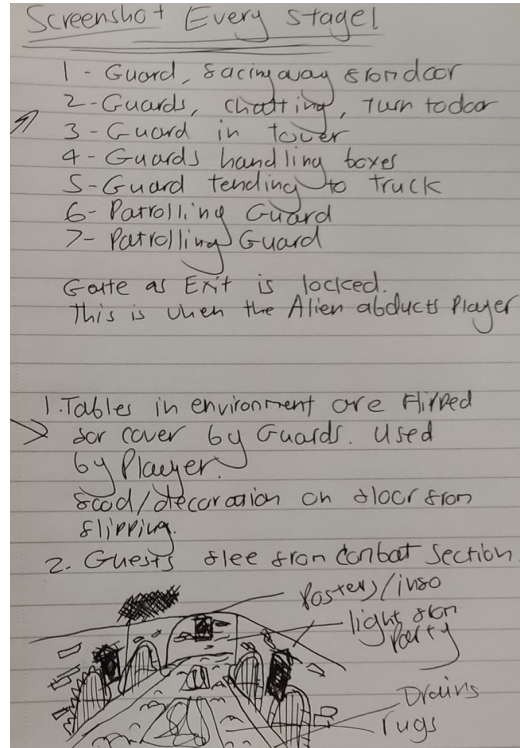 Screenshot Every stage!
1 - Guard, facing away from door
2 - Guards, chatting, turn to door
3 - Guard in tower
4 - Guards handling boxes
5 - Guard tending to truck
6 - Patrolling Guard
7 - Patrolling Guard
Gate as Exit is locked.
This is when the Alien abducts Player
1. Tables in environment are flipped
for cover by Guards. Used
by Player.
food/decoration on floor from
flipping.
2. Guests flee from combat section.
Posters/info
light from
Party
Drains
rugs